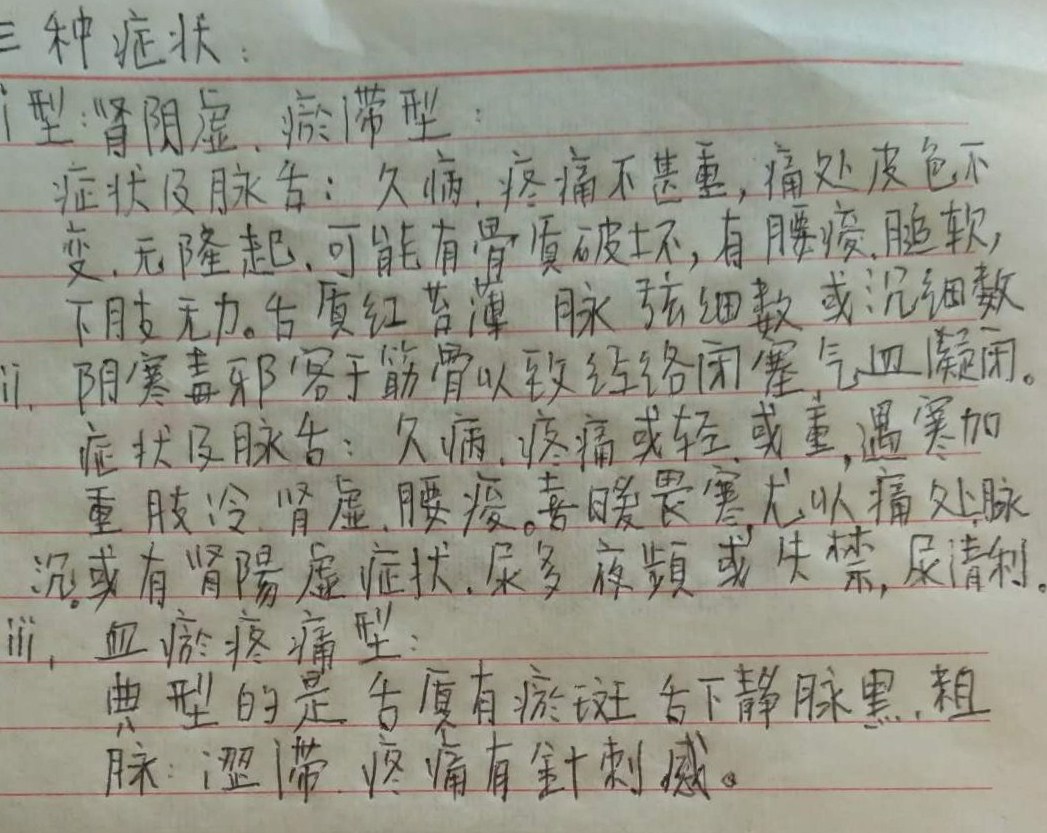 三种症状：
i型：肾阴虚、瘀滞型：
症状及脉舌：久病、疼痛不甚重，痛处皮色不
变、无隆起、可能有骨质破坏，有腰痠、腿软，
下肢无力。舌质红苔薄 脉弦细数或沉细数
ii、阴寒毒邪客于筋骨以致经络闭塞气血凝闭。
症状及脉舌：久病、疼痛或轻、或重，遇寒加
重肢冷、肾虚、腰痠。喜暖畏寒，尤以痛处、脉
沉。或有肾陽虚症状、尿多夜頻或失禁，尿清利。
iii、血瘀疼痛型：
典型的是舌质有瘀斑舌下静脉黑、粗
脉：涩滞、疼痛有針刺感。